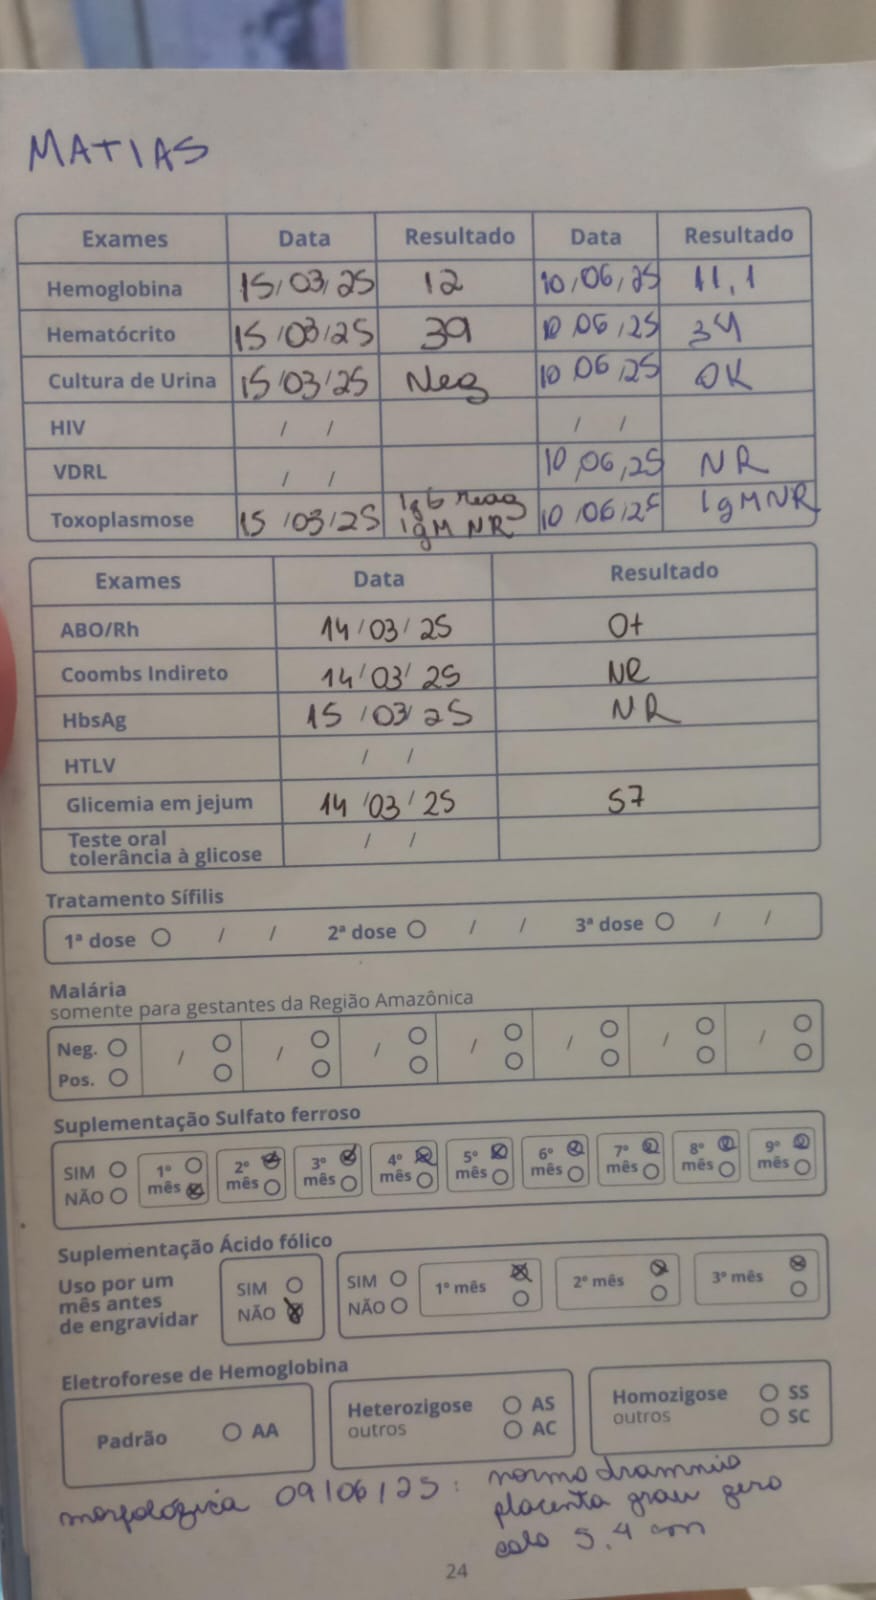 MATIAS
Exames Data Resultado Data Resultado
Hemoglobina 15/03/25 12 10/06/25 11,1
Hematócrito 15/03/25 39 10/06/25 34
Cultura de Urina 15/03/25 Neg 10/06/25 OK
HIV / / / /
VDRL / / 10/06/25 NR
Toxoplasmose 15/03/25 IgG reag IgM NR 10/06/25 IgM NR
Exames Data Resultado
ABO/Rh 14/03/25 O+
Coombs Indireto 14/03/25 NR
HbsAg 15/03/25 NR
HTLV / /
Glicemia em jejum 14/03/25 57
Teste oral
tolerância à glicose / /
Tratamento Sífilis
1ª dose / / 2ª dose / / 3ª dose / /
Malária
somente para gestantes da Região Amazônica
Neg. / / / / / / /
Pos.
Suplementação Sulfato ferroso
SIM 1º 2º 3º 4º 5º 6º 7º 8º 9º
NÃO mês mês mês mês mês mês mês mês mês
Suplementação Ácido fólico
Uso por um
mês antes
de engravidar
SIM
NÃO
SIM
NÃO
1º mês 2º mês 3º mês
Eletroforese de Hemoglobina
Padrão AA
Heterozigose AS
outros AC
Homozigose SS
outros SC
morfológica 09/06/25: normodramnio
placenta grau zero
colo 5.4 cm
24